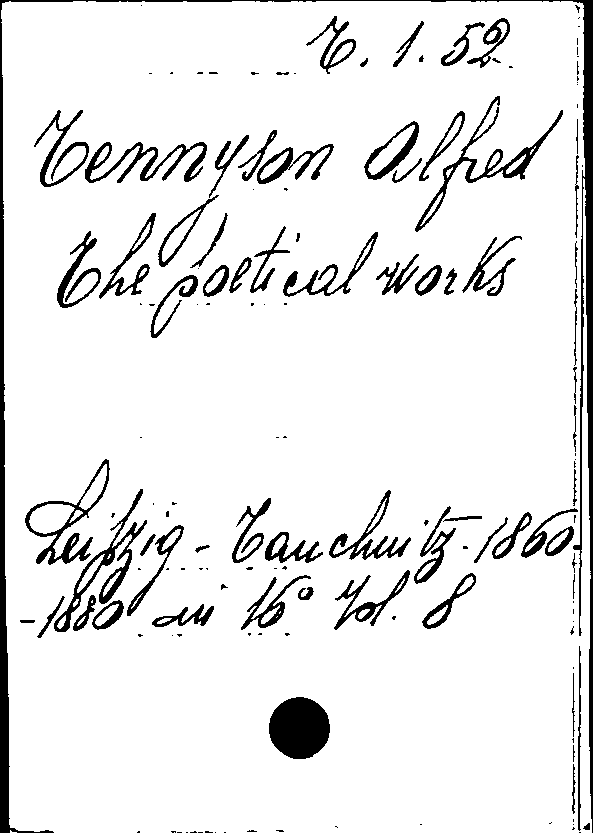 T. 1. 52
Tennyson Alfred
The poetical works
Leipzig - Tauchnitz. 1860
-1880 in 16° Vol. 8